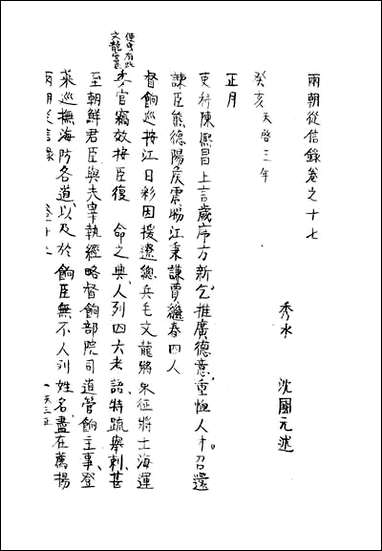 兩朝從信錄卷之十七
秀水 沈國元述
癸亥 天啓三年
正月
吏科陳熙昌上言歲序方新乞推廣德意重恤人才召還
諫臣熊德陽侯震暘江秉謙賈繼春四人
督餉巡按江日彩因援遼總兵毛文龍將東征將士海運
委官竊效按臣復 命之典人列四六考語特疏舉刺甚
至朝鮮君臣與夫宰執經略督餉部院司道管餉主事登
萊巡撫海防各道以及於餉臣無不人列姓名盡在薦揚
兩朝從信錄